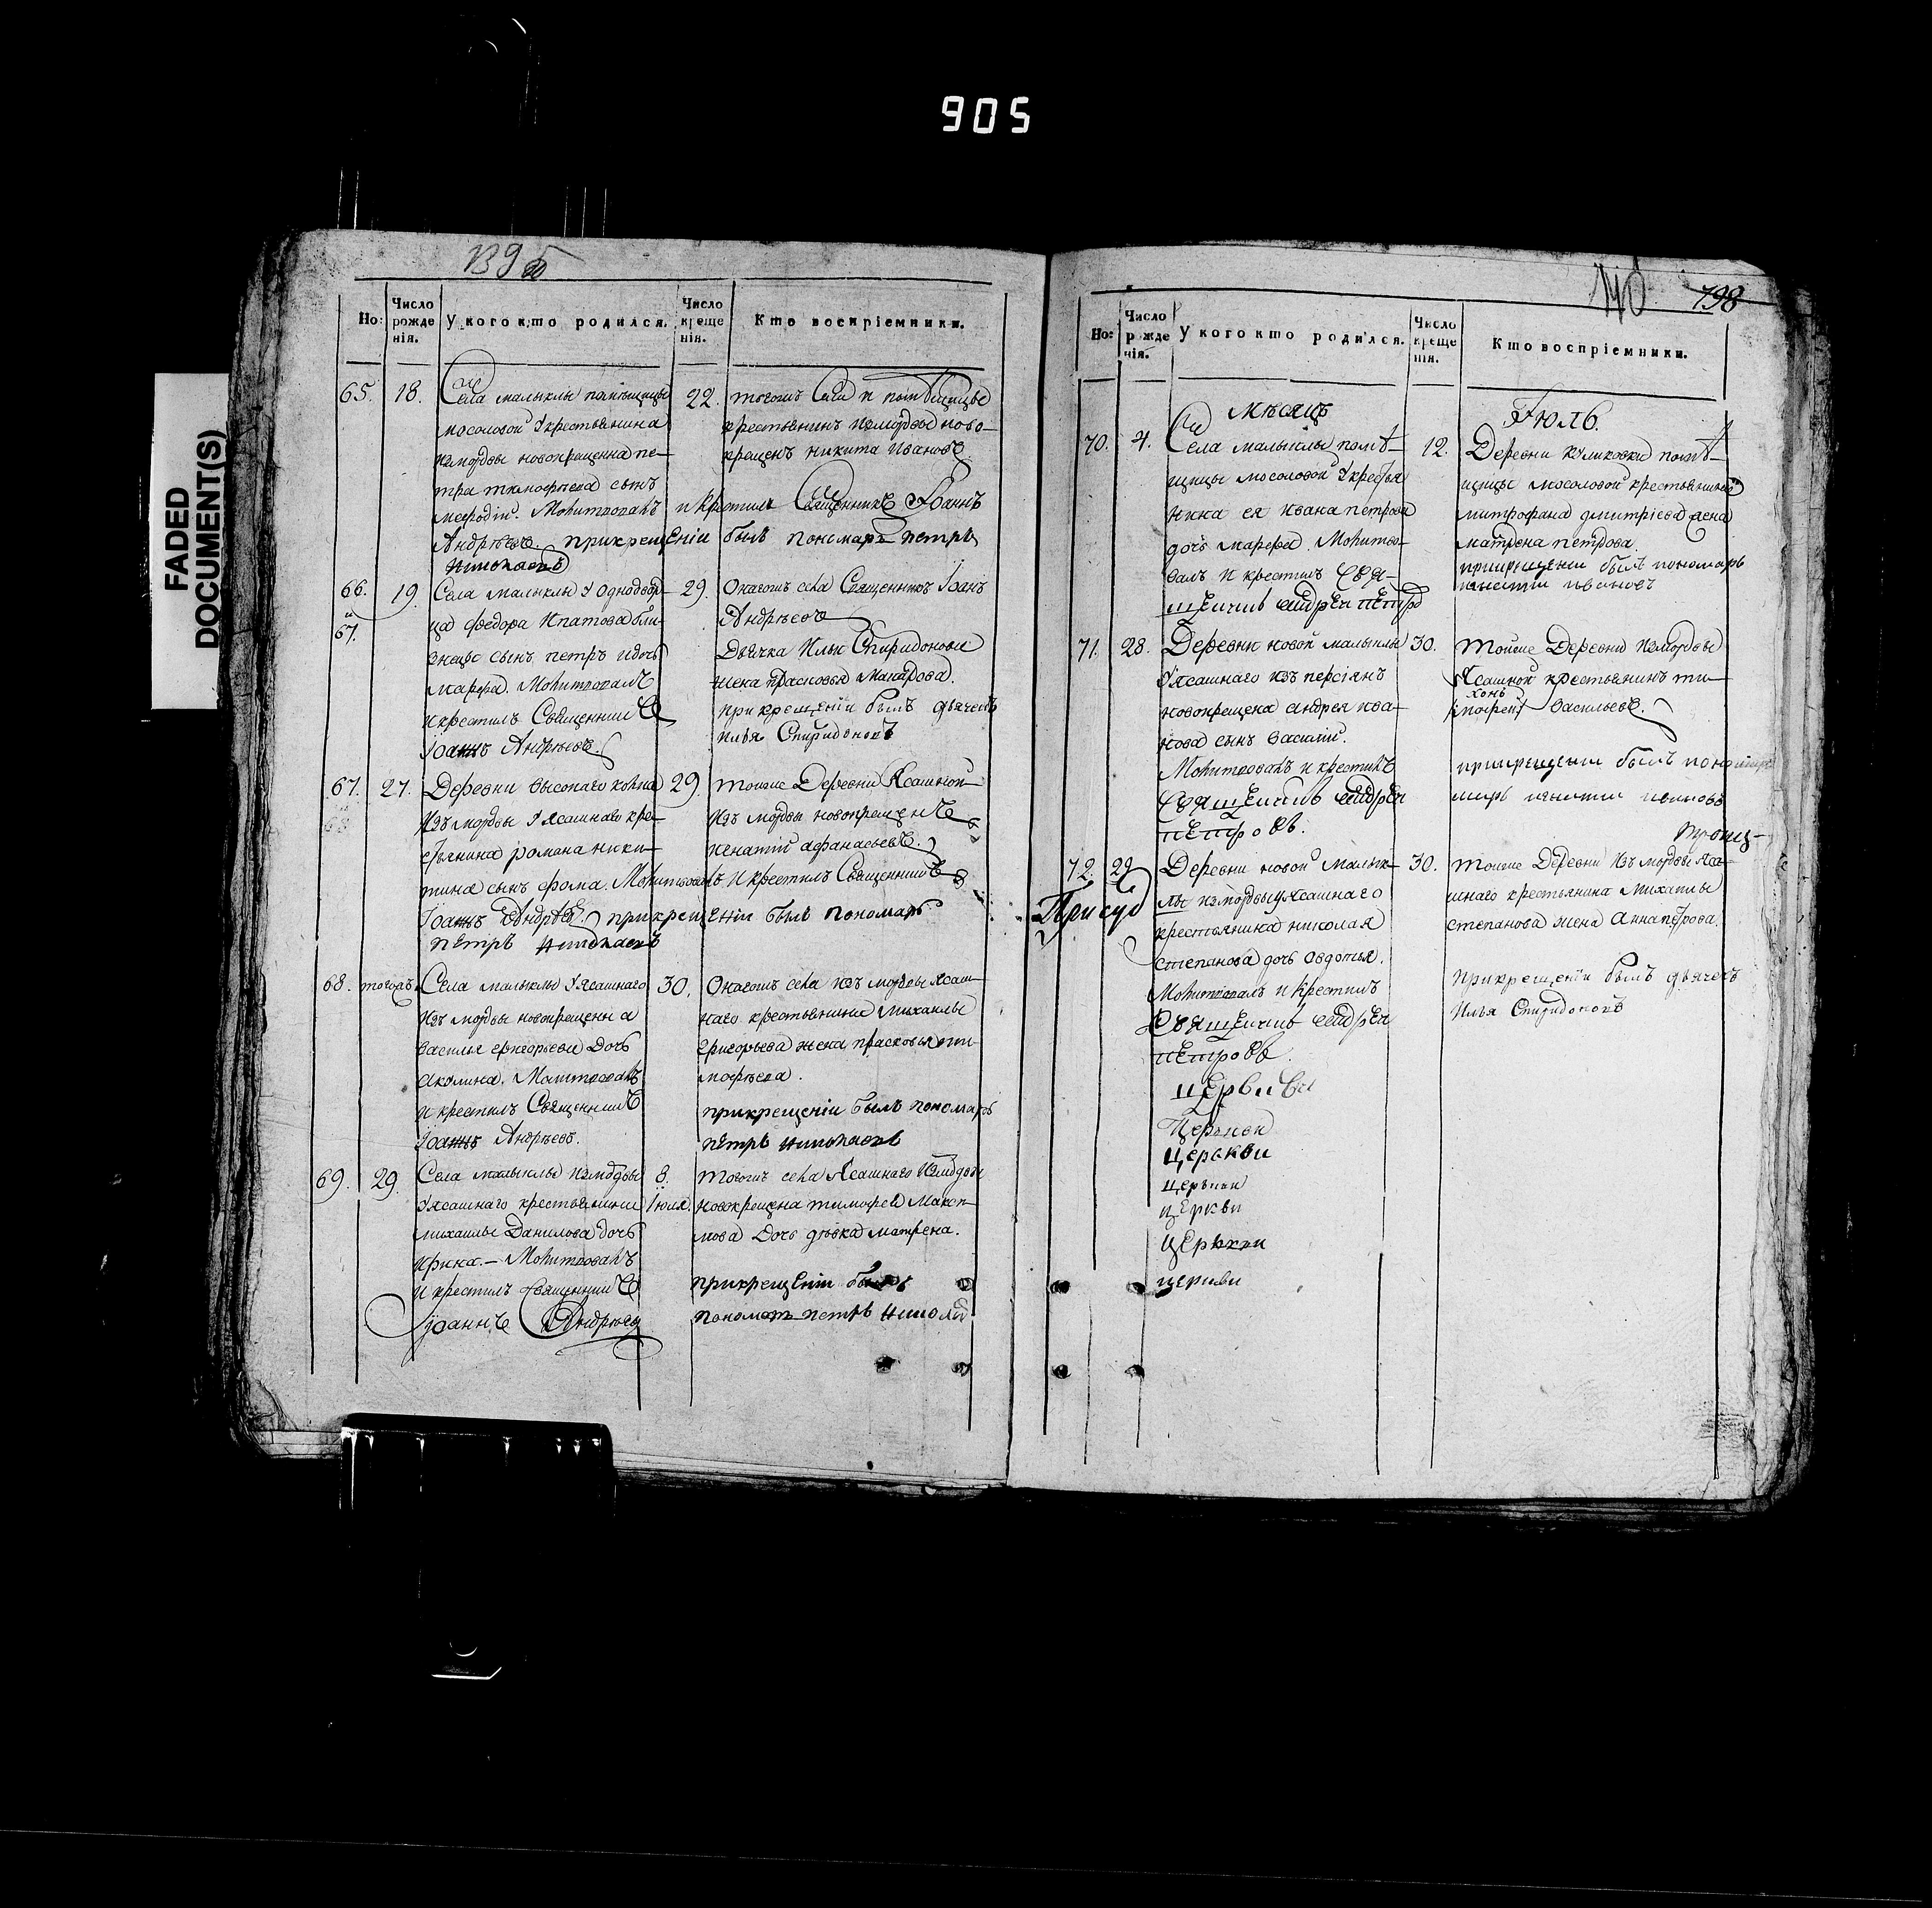 905
FADED
DOCUMENT(S)
139
Но:
Число рожденія.
У кого кто родился.
Число крещенія.
Кто воспріемники.
65. 18.
Села малыклы помѣщицы
мосоловой у крестьянина
измордвы новокрещенна пе-
тра тимофѣева сынъ
мефодiй. Молитвовалъ
Андрѣевъ. прикрещеніи былъ пономарь петръ
Николаевъ
22.
тогожъ села и помѣщицы
крестьянинъ измордвы ново-
крещенъ никита Ивановъ
и крестилъ Священникъ Iоаннъ
66. и 67. 19.
Села малыклы у однодвор-
ца федора Ипатова бли-
знецы сынъ петръ и дочь
марфа. Молитвовалъ
и крестилъ Священникъ
Iоаннъ Андрѣевъ.
29.
Онагожъ села Священникъ Iоанъ
Андрѣевъ
Дьячка Ильи Спиридонова
жена прасковья
прикрещеніи былъ дьячекъ
илья Спиридоновъ
67. 27.
Деревни высокаго колка
изъ мордвы у ясашнаго кре-
стьянина романа ники-
тина сынъ фома. Молитвовалъ и крестилъ Священникъ
Iоаннъ Андрѣевъ прикрещеніи былъ пономарь
петръ Николаевъ
29.
тоиже Деревни Ясашной
изъ мордвы новокрещенъ
игнатiй афанасьевъ.
68. тогожъ
Села малыклы у Ясашнаго
изъ мордвы новокрещенна
василья григорьева дочь
акулина. Молитвовалъ
и крестилъ Священникъ
Iоаннъ Андрѣевъ.
30.
Онагожъ села изъ мордвы ясаш-
наго крестьянина михаилы
григорьева жена прасковья ти-
мофѣева.
прикрещеніи былъ пономарь
петръ Николаевъ
69. 29.
Села малыклы измордвы
у ясашнаго крестьянина
михаилы Данилова дочь
ирина. – Молитвовалъ
и крестилъ священникъ
iоаннъ Андрѣевъ
8. Iюля.
тогожъ села Ясашнаго измордвы
новокрещена тимофея макси-
мова дочь дѣвка матрена.
прикрещеніи былъ
пономарь петръ Николаевъ
140 198
Но:
Число рожденія.
У кого кто родился.
Число крещенія.
Кто воспріемники.
мѣсяцъ Iюль.
70. 4.
Села малыклы помѣ-
щицы мосоловой у крестья
нина ея ивана петрова
дочь марфа. Молитво-
валъ и крестилъ свя-
щенникъ андрей петров
12.
Деревни куликовки помѣ-
щицы мосоловой крестьянина
митрофана дмитрiева жена
матрена петрова.
прикрещеніи былъ пономарь
игнатiй ивановъ
71. 28.
Деревни новой малыклы
у ясашнаго изъ персiянъ
новокрещена андрея ива-
нова сынъ василiй.
Молитвовалъ и крестилъ
священникъ андрей
петровъ.
30.
тоиже Деревни измордвы
Ясашной крестьянинъ ти-
хонъ
васильевъ.
прикрещеніи былъ
игнатiй ивановъ
72. 29.
Деревни новой малык-
лы измордвы у ясашнаго
крестьянина николая
степанова дочь авдотья.
Молитвовалъ и крестилъ
священникъ андрей
петровъ.
30.
тоиже Деревни изъ мордвы яса-
шнаго крестьянина михаилы
степанова жена анна петрова.
прикрещеніи былъ дьячекъ
Илья Спиридоновъ
церкви
церкви
церкви
церкви
церкви
церкви
церкви